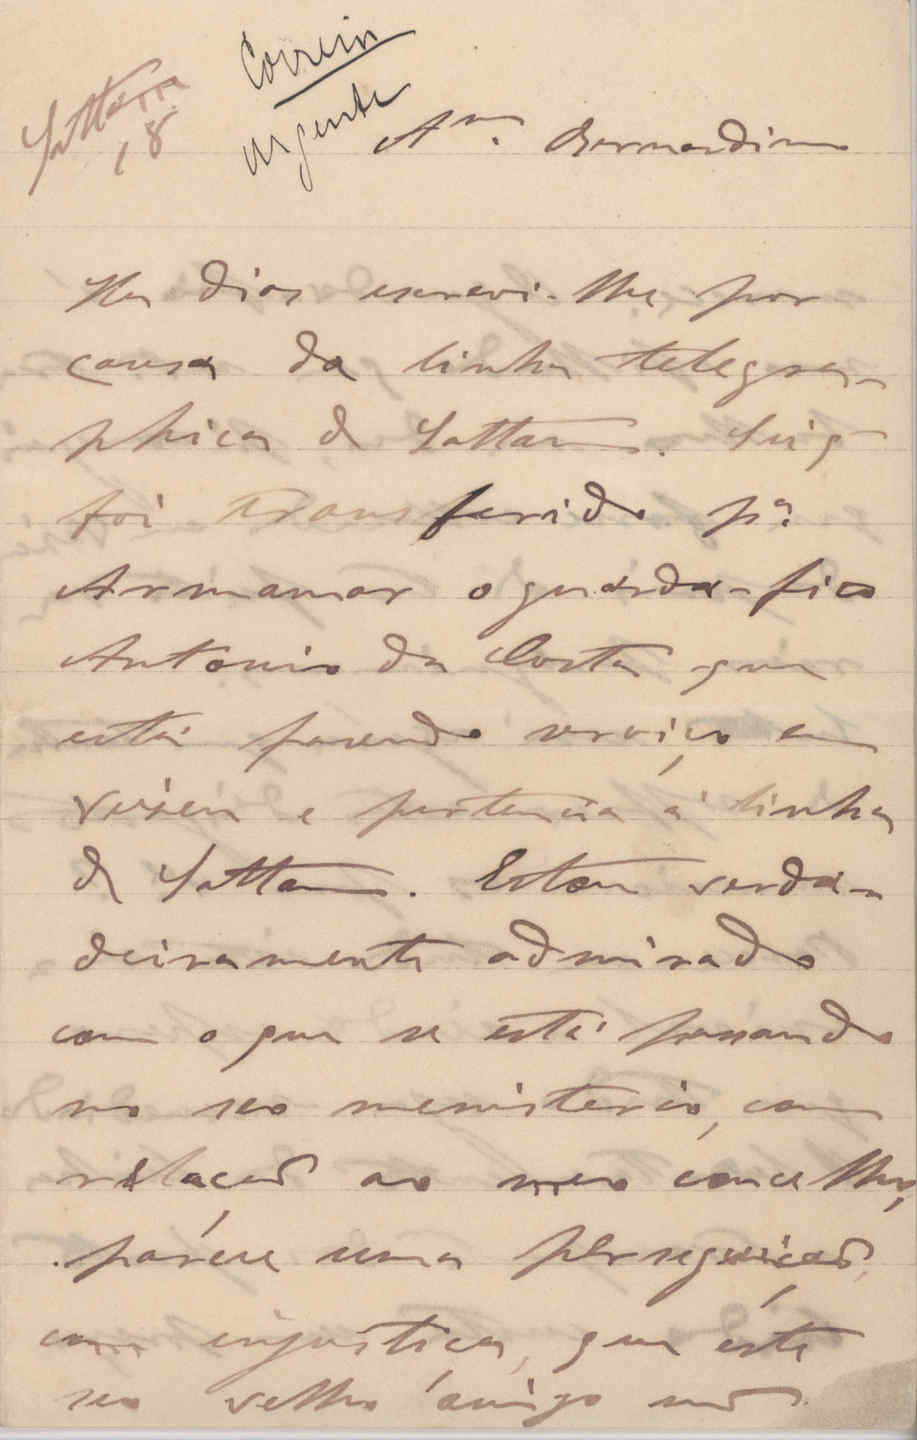 Sattam
18
Correio
urgente
Am.º Bernardino
Ha dias escrevi-lhe por
causa da linha telegra-
phica de Sattam.
foi transferido p.ª
Armamar o guarda-fios
Antonio da Costa que
está fazendo serviço em
Vizeu e pertencia á linha
de Sattam. Estou verda-
deiramente admirado
com o que se está passando
no seo menisterio, com
relação ao meo concelho,
parece uma perseguição,
uma injustica, que este
seo velho amigo não